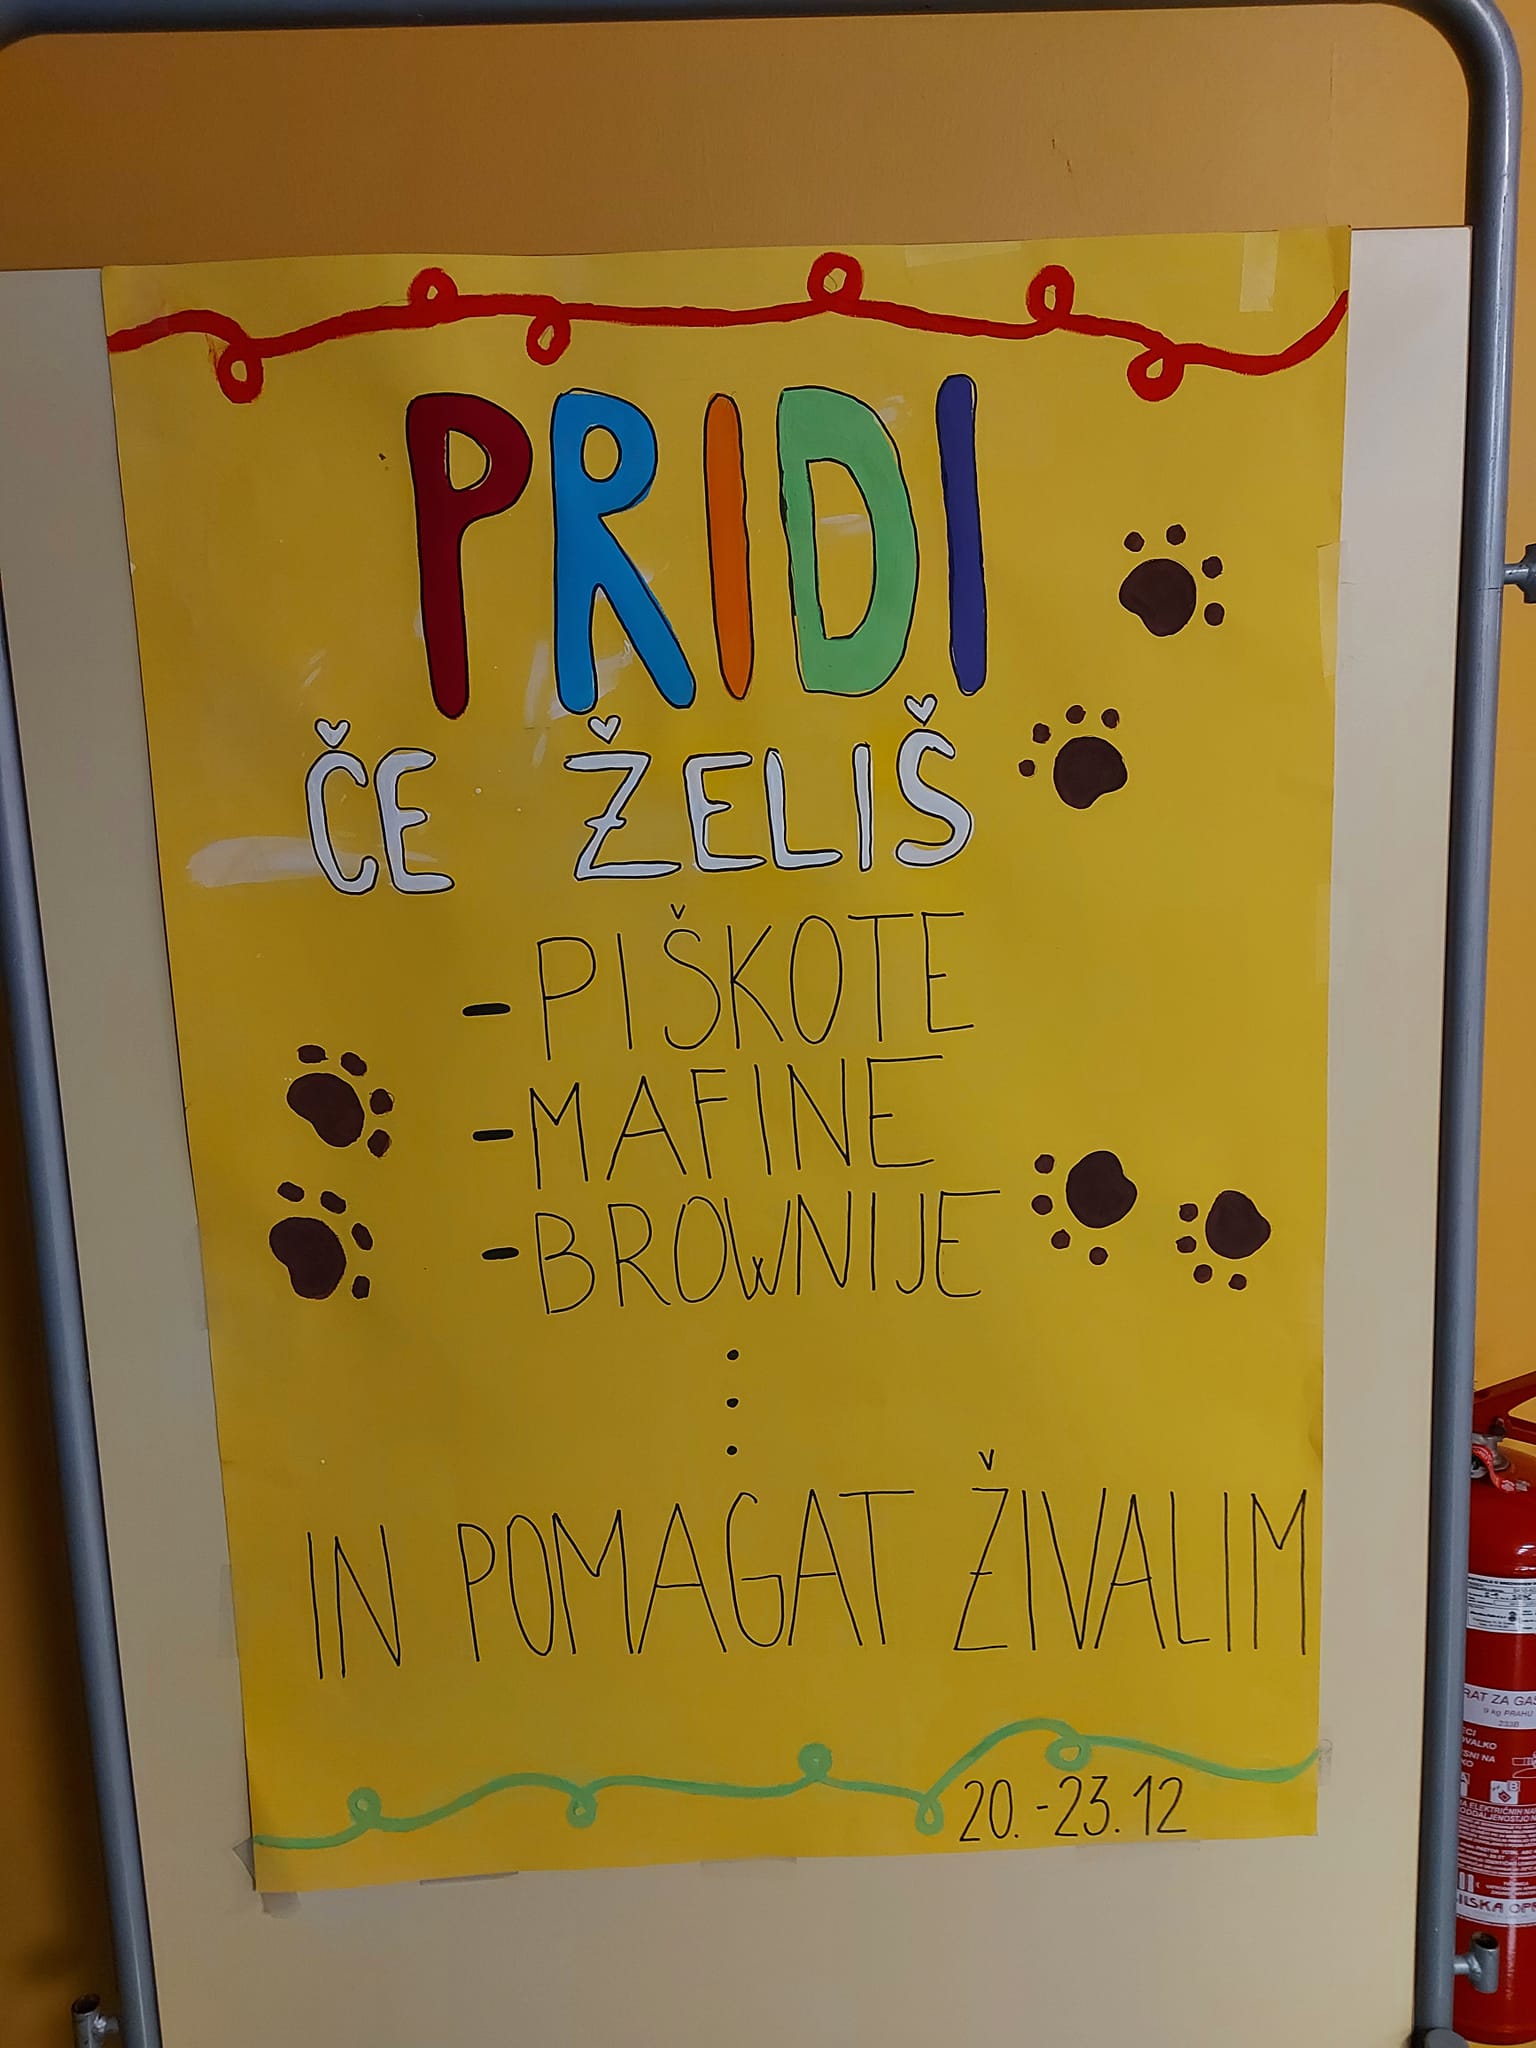 PRIDI
ČE ŽELIŠ
- PIŠKOTE
- MAFINE
- BROWNIJE
.
.
.
IN POMAGAT ŽIVALIM
20.-23.12
RAT ZA GAŠ
9 kg PRAHU
233B